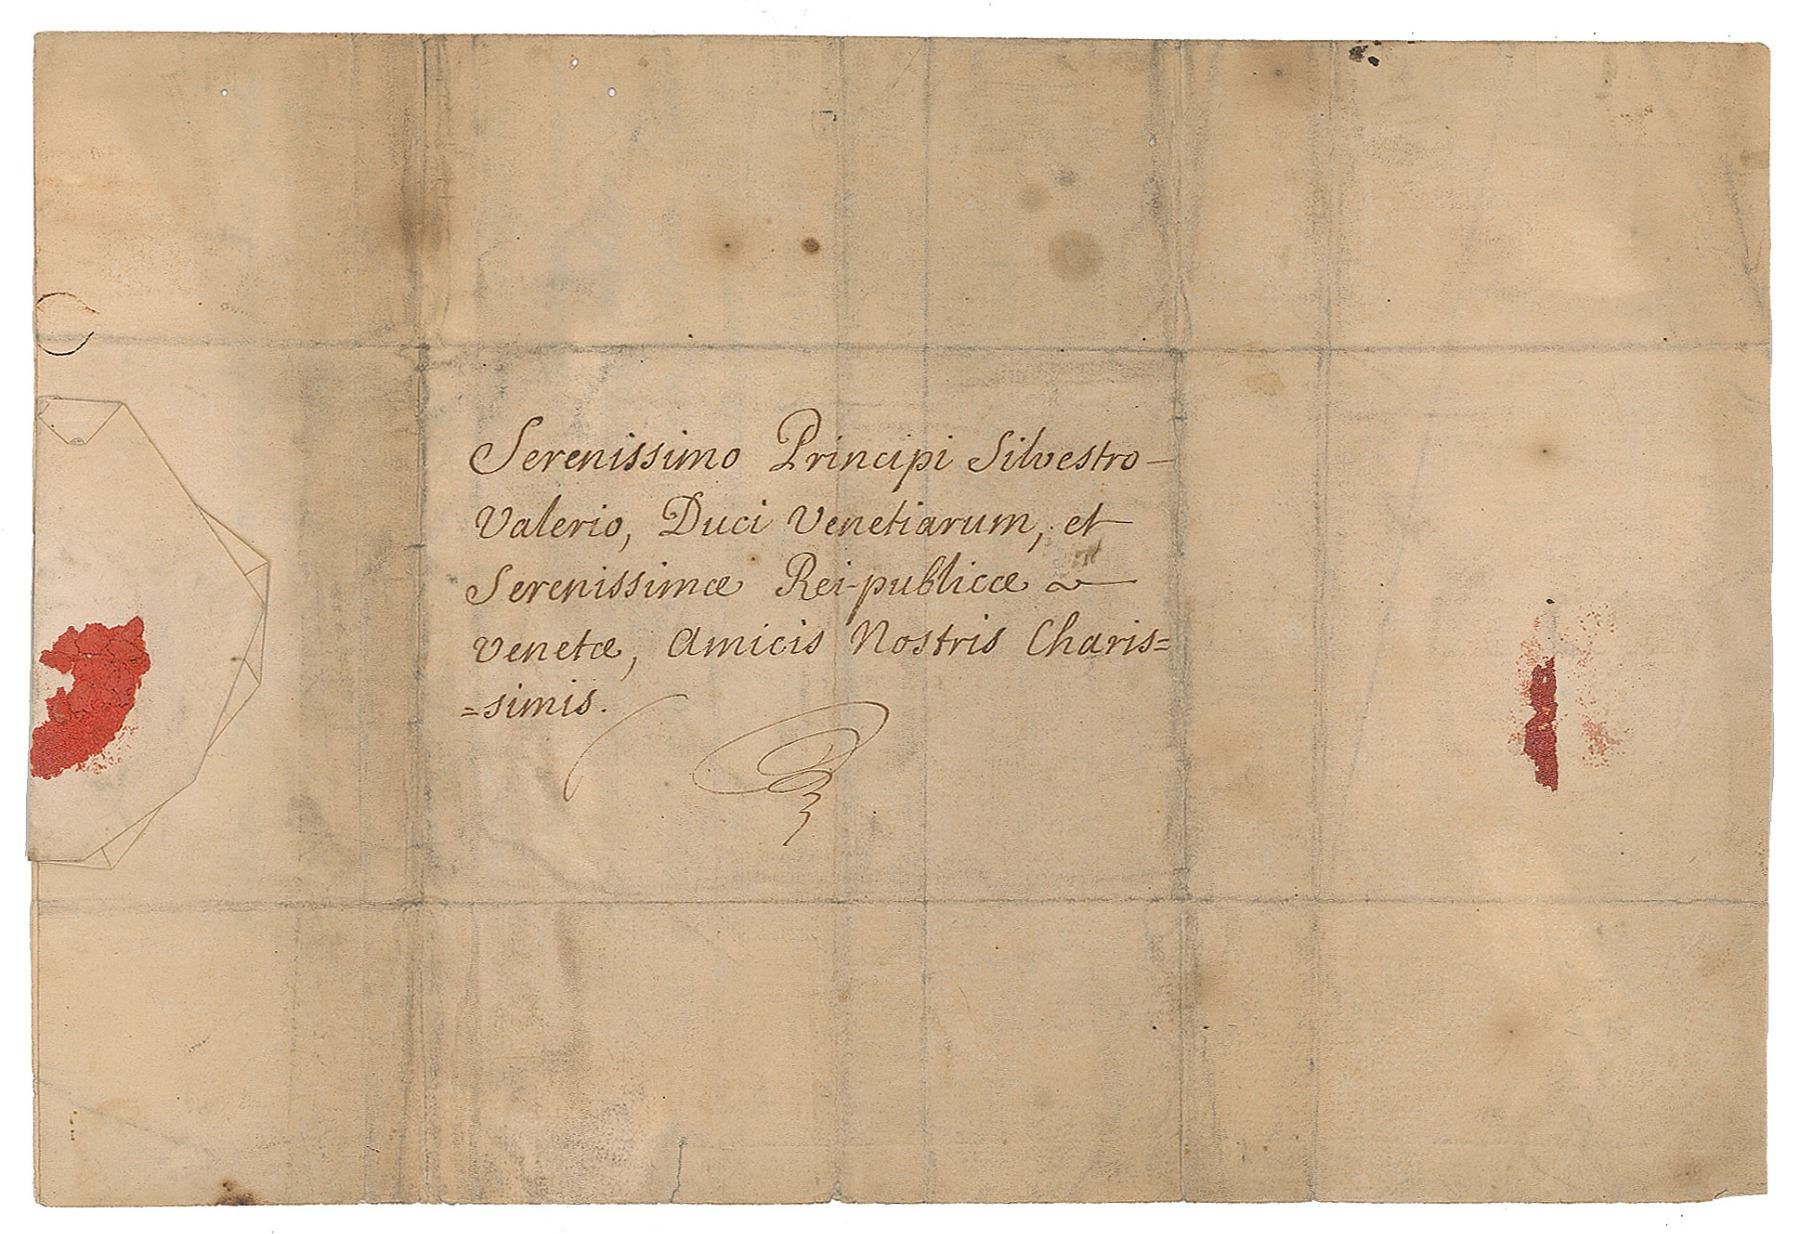 Serenissimo Principi Silvestro
Valerio, Duci Venetiarum, et
Serenissimæ Rei-publicæ
Venetæ, Amicis Nostris Charis=
=simis.